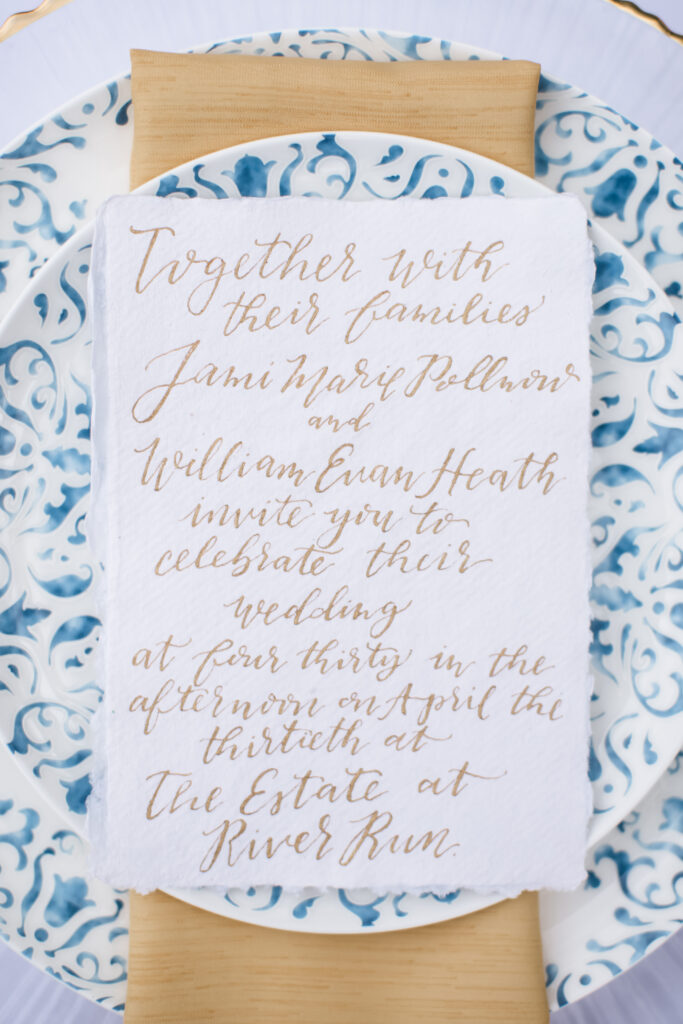 Together with
their families
Jami Marie Pollnow
and
William Evan Heath
invite you to
celebrate their
wedding
at four thirty in the
afternoon on April the
thirtieth at
The Estate at
River Run.